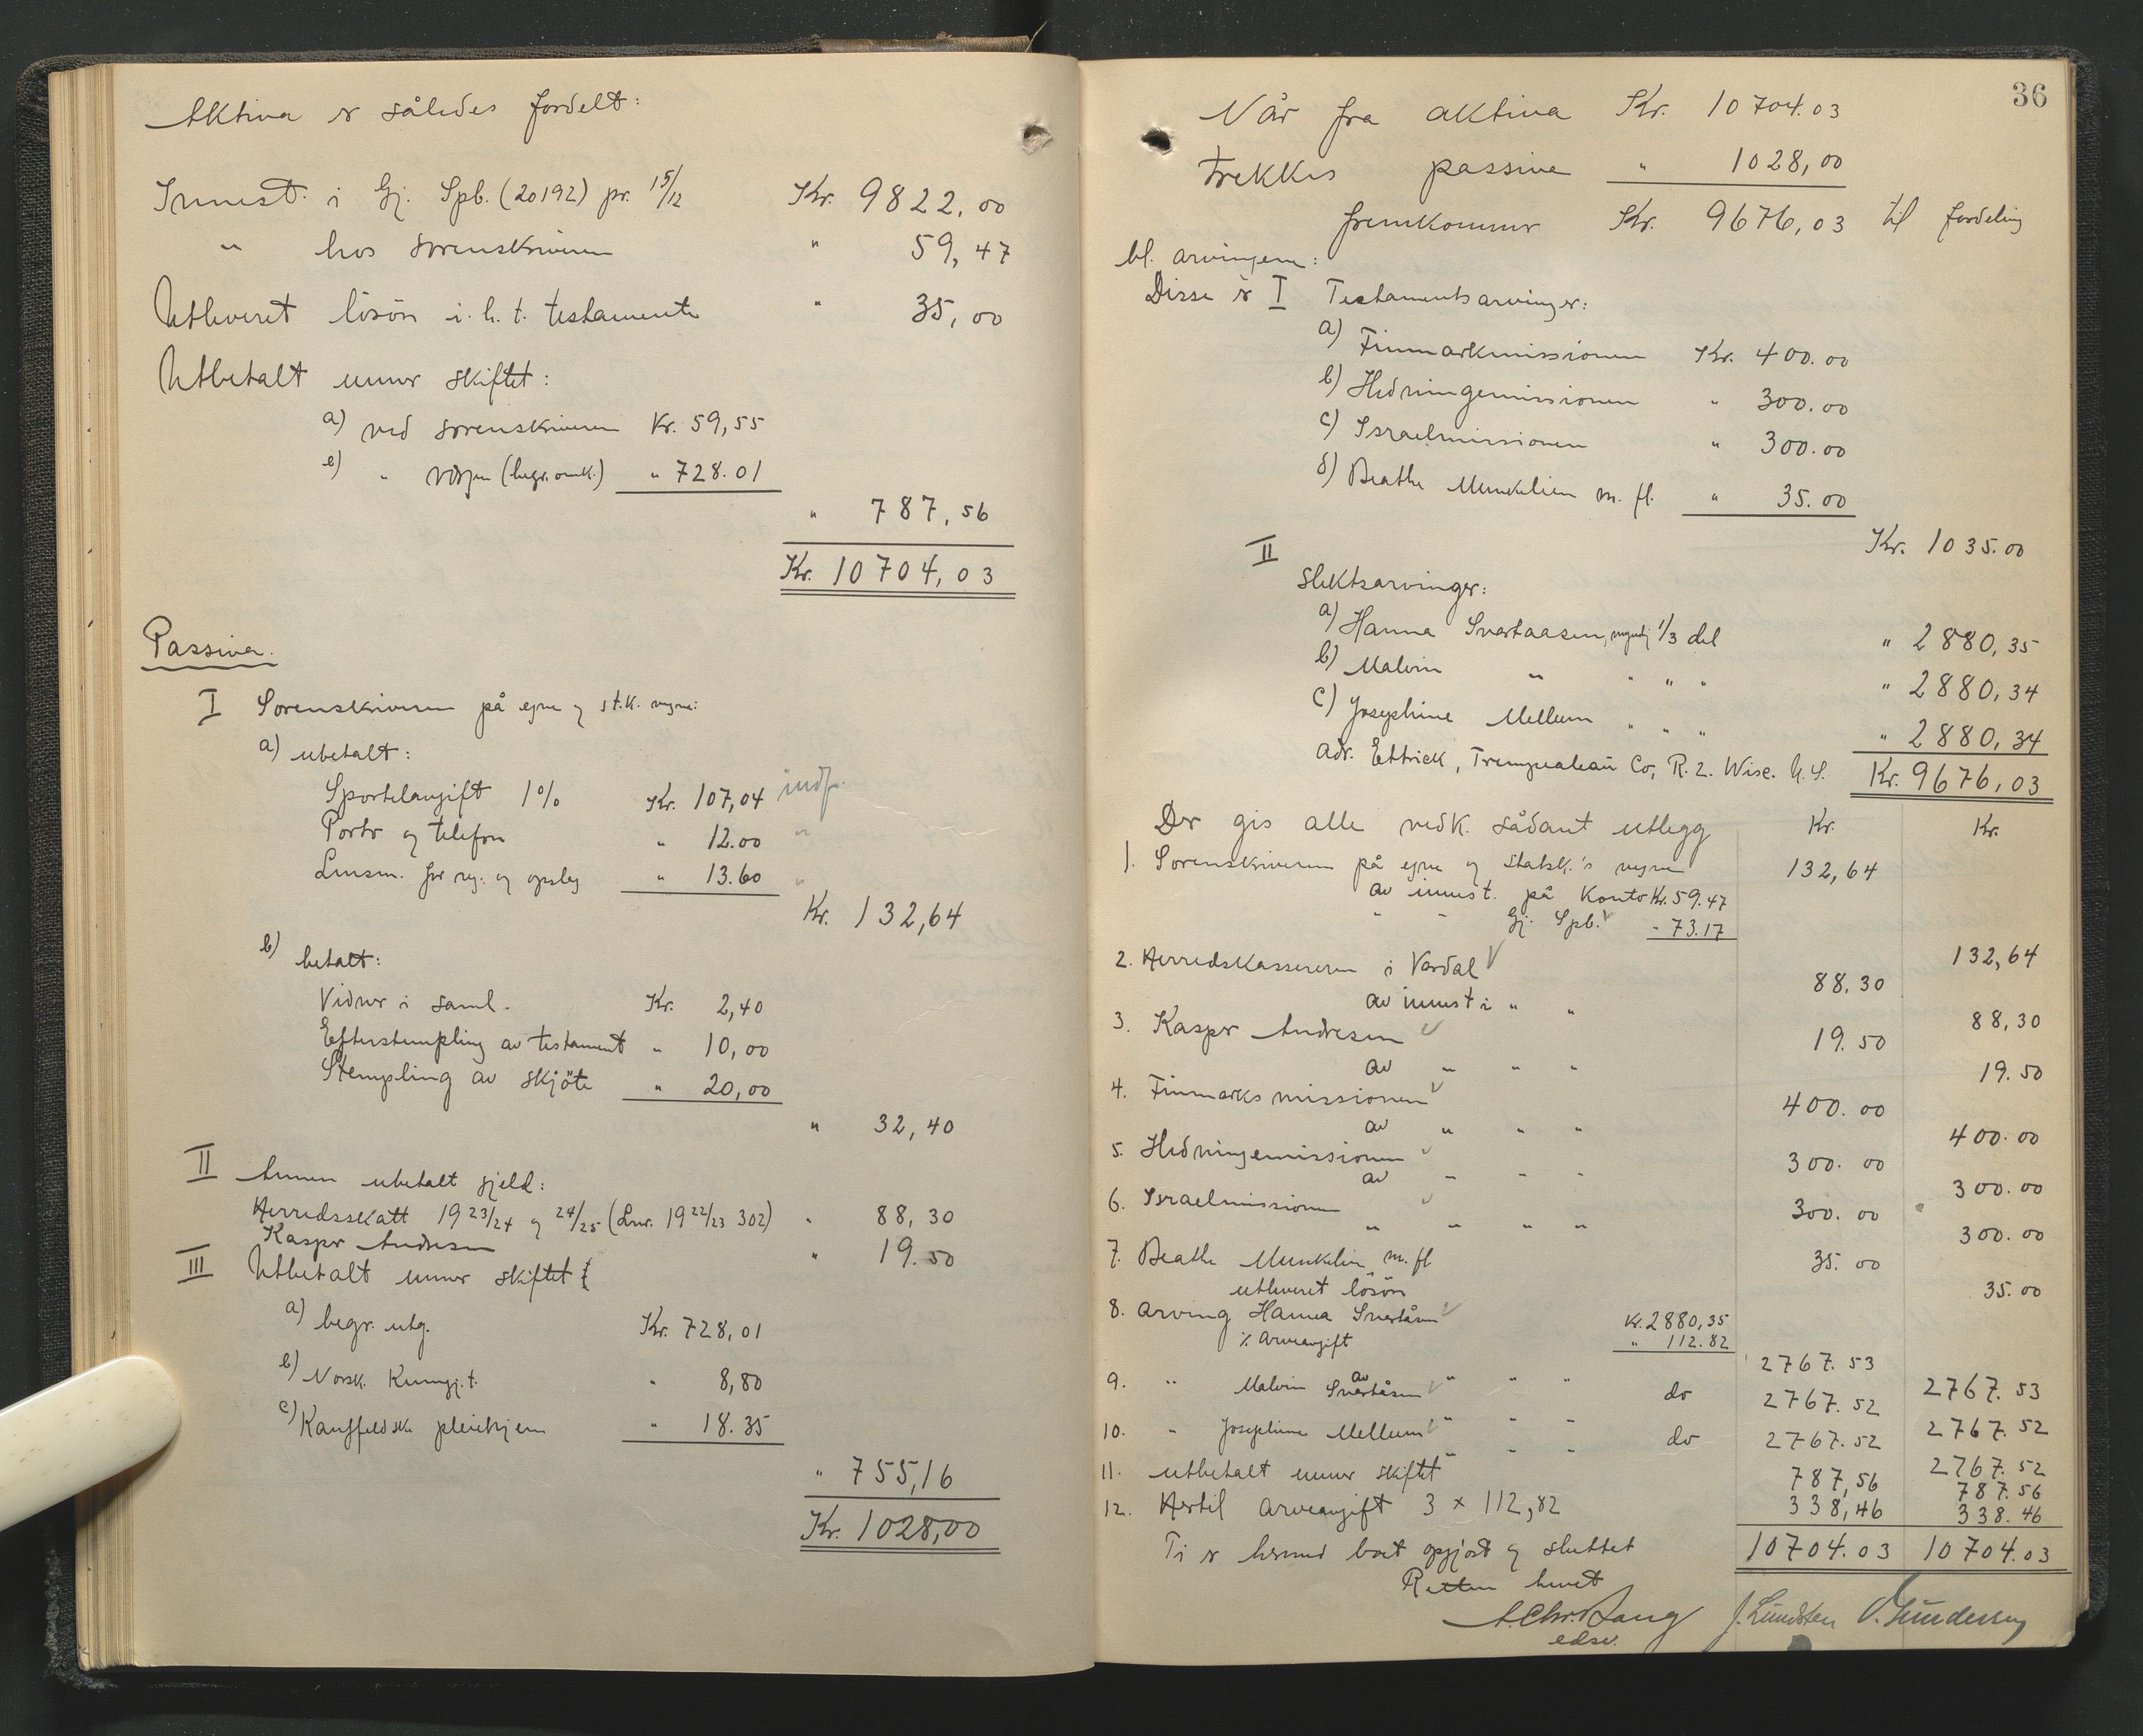 Aktiva er således fordelt:
Innest. i Gj. Spb. (20192) pr. 15/12 Kr. 9822,00
" hos sorenskriveren " 59,47
Utleveret lösöre i.h.t. testamente " 35,00
Utbetalt unner skiftet:
a) ved sorenskriveren Kr. 59,55
b) " vergen (begr. omk.) " 728.01
" 787,56
Kr. 10704,03
Passiva.
I Sorenskriveren på egne og st.k. vegne:
a) ubetalt:
Sportelavgift 1% Kr. 107,04 indf.
Porto og telefon " 12.00 "
Lensm. for reg. og opslag " 13.60 "
Kr. 132,64
b) betalt:
Vidner i saml. Kr. 2,40
Efterstempling av testament " 10,00
Stempling av skjöte " 20,00
" 32,40
II Annen ubetalt gjeld:
Herredsskatt 19 23/24 og 24/25 (Lnr. 19 22/23 302) " 88,30
Kaspar Andresen " 19.50
III Utbetalt unner skiftet:
a) begr. utg. Kr. 728,01
b) Norsk. Kunngj.t. " 8,80
c) Kauffeldske pleiehjem " 18.35
" 755,16
Kr. 1028,00
36
Når fra aktiva Kr. 10704.03
trekkes passiva " 1028,00
fremkommer Kr. 9676,03 til fordeling
bl. arvingene:
Disse er I Testamentsarvinger:
a) Finmarkmissionen Kr. 400.00
b) Hedningemissionen " 300.00
c) Israelmissionen " 300.00
d) Beathe Munkelien m. fl. " 35.00
Kr. 1035.00
II
Slektsarvinger:
a) Hanna Svartaasen, myndig 1/3 del " 2880,35
b) Malvin " " " " " 2880,34
c) Josephine Mellum " " " " 2880,34
adr. Ettrick, Trempealeau Co, R. 2. Wisc. U.S. Kr. 9676,03
Der gis alle vedk. sådant utlegg Kr. Kr.
1. Sorenskriveren på egne og statsk.'s vegne 132,64
av innest. på Konto Kr. 59.47
" " Gj. Spb. - 73.17
132,64
2. Herredskassereren i Vardal 88.30
av innest i " " 88,30
3. Kaspar Andresen 19.50
av " " " 19.50
4. Finmarksmissionen 400.00
av " " " 400.00
5. Hedningemissionen 300.00
av " " " 300.00
6. Israelmissionen 300.00
" " " " 300.00
7. Beathe Munkelien m. fl 35.00
utleveret lösöre 35.00
8. Arving Hanna Svartåsen Kr. 2880,35
% Arveavgift " 112.82
2767.53
av " " " 2767.53
9. " Malvin Svartåsen do 2767.52
" " " 2767.52
10. " Josephine Mellum do 2767.52
" " " 2767.52
11. utbetalt unner skiftet 787,56 787.56
12. Hertil arveavgift 3 x 112,82 338,46 338.46
Ti er hermed boet opgjort og sluttet 10704.03 10704.03
Retten hevet
A. Chr. Bang J. Lundsten O. Gundersen
edsv.